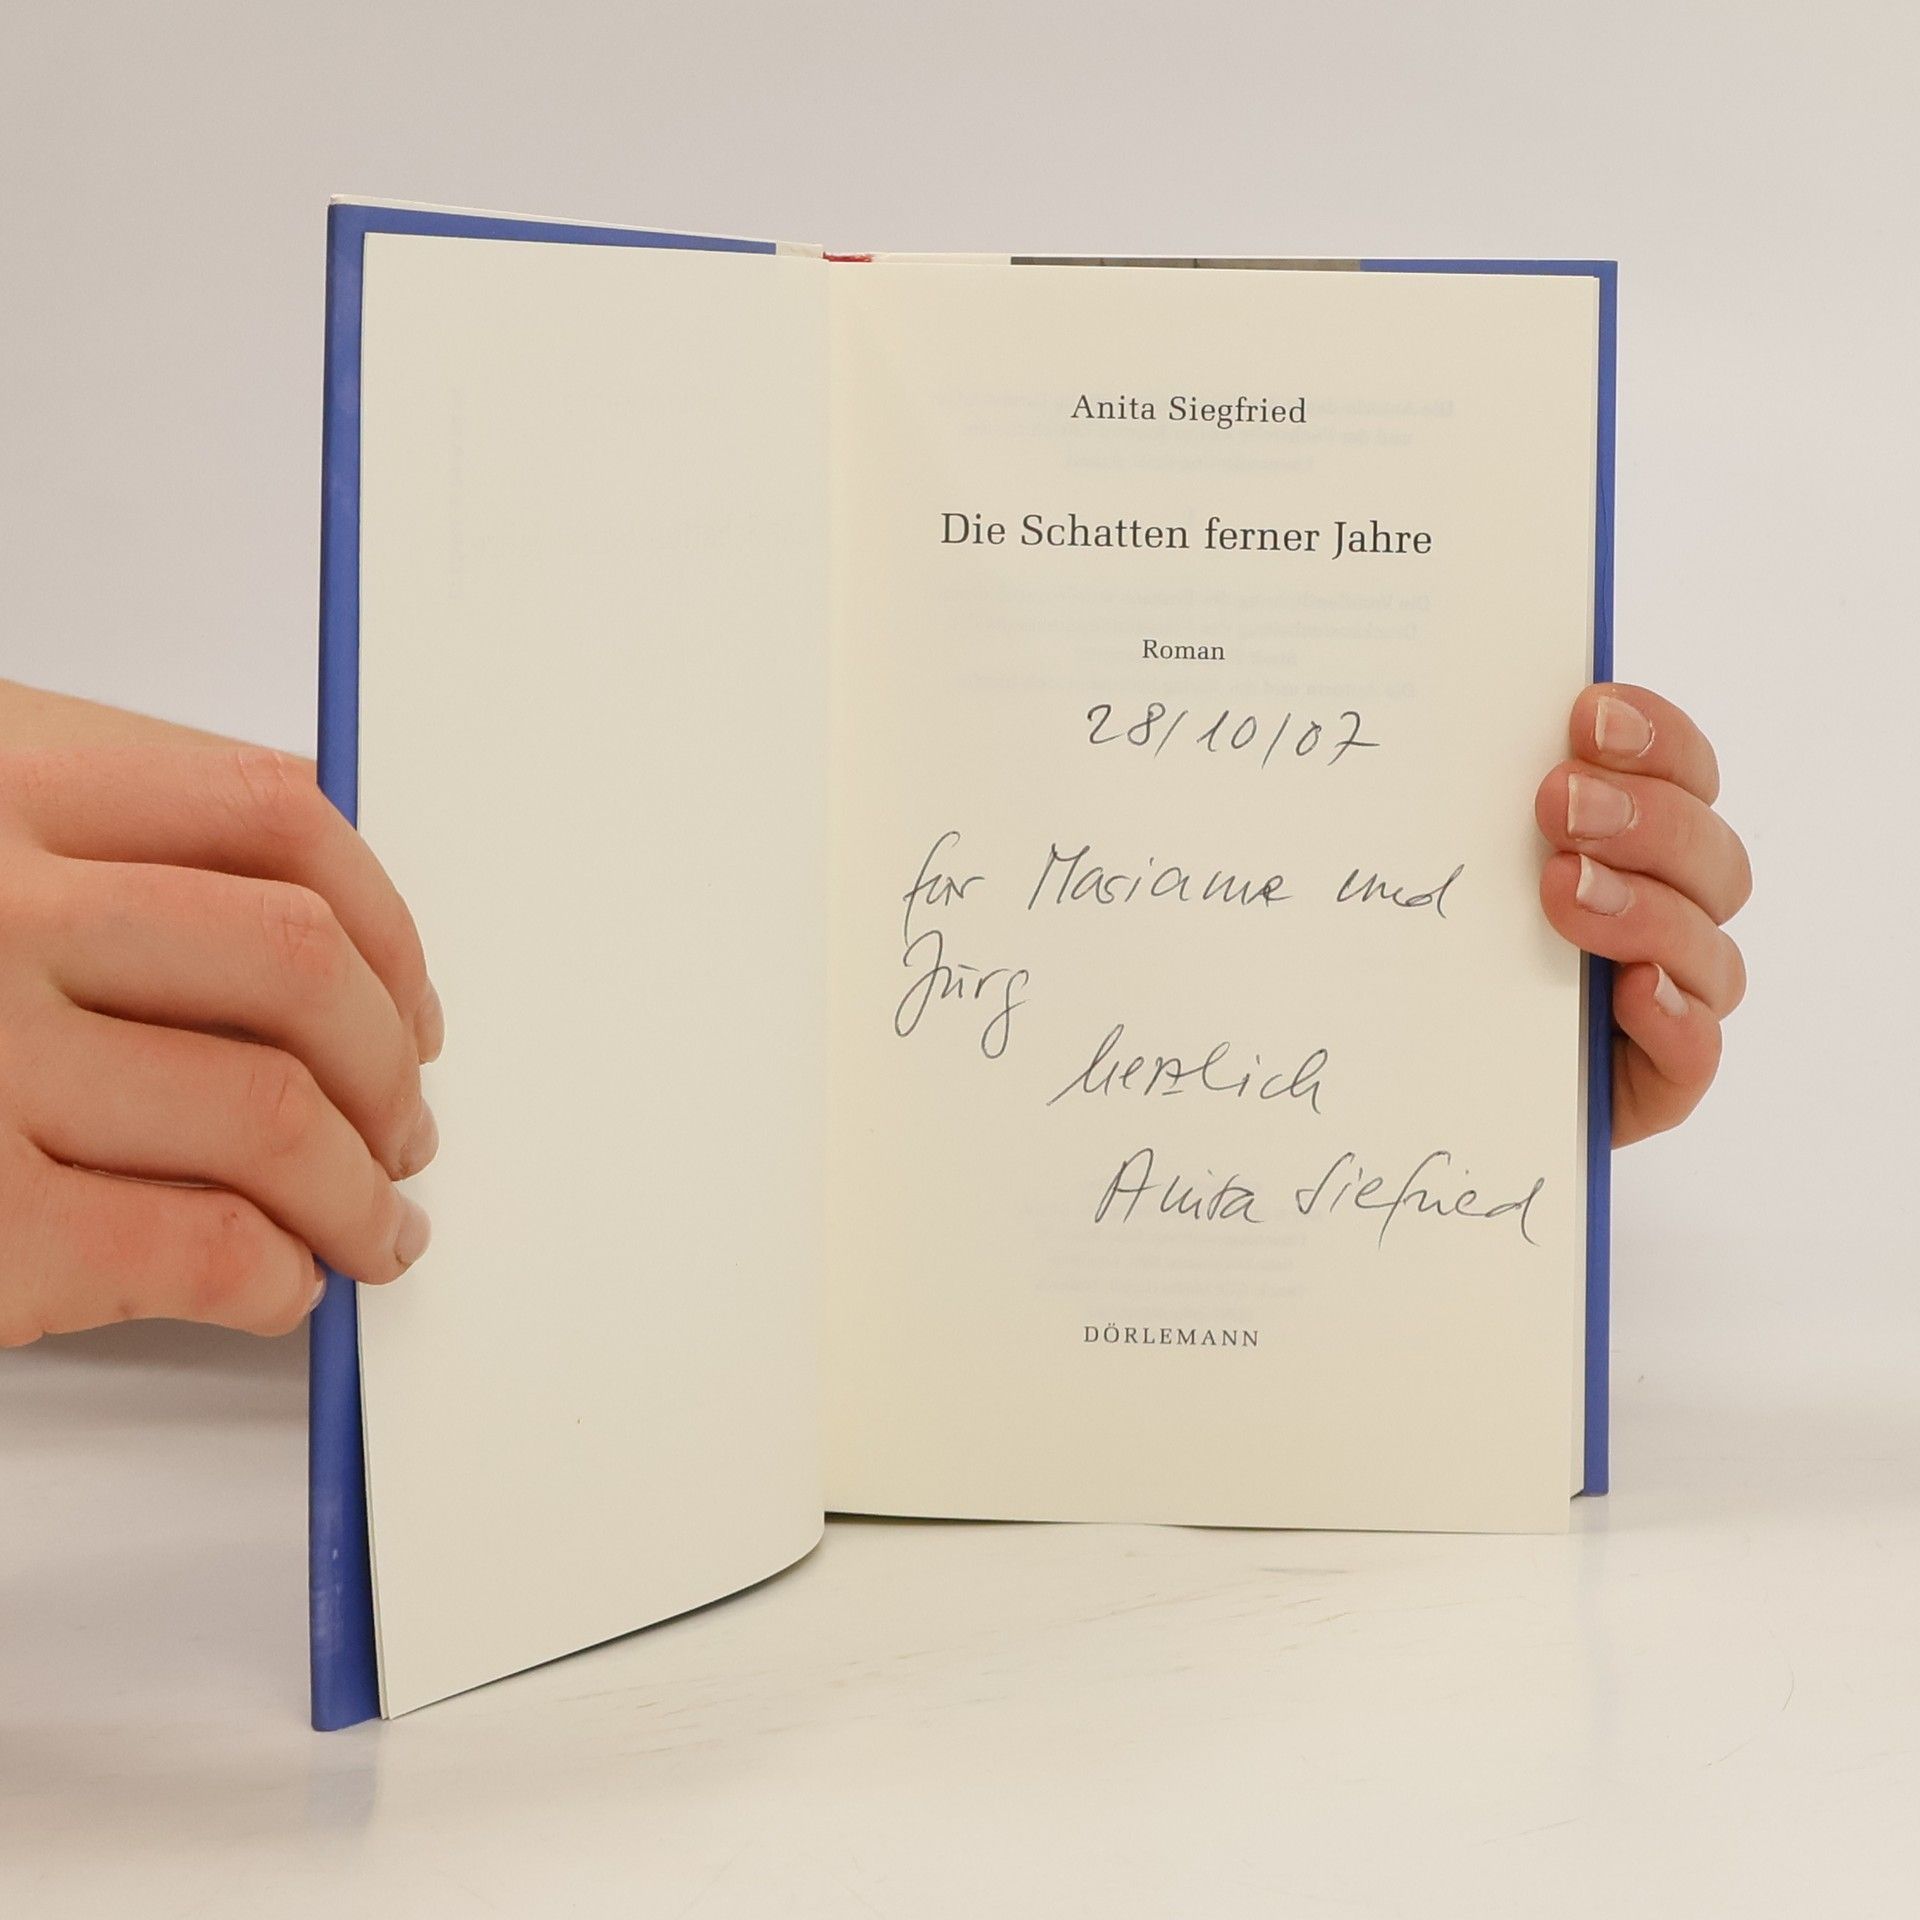 Anita Siegfried
Die Schatten ferner Jahre
Roman
28/10/07
für Marianne und
Jürg
herzlich
Anita Siegfried
DÖRLEMANN